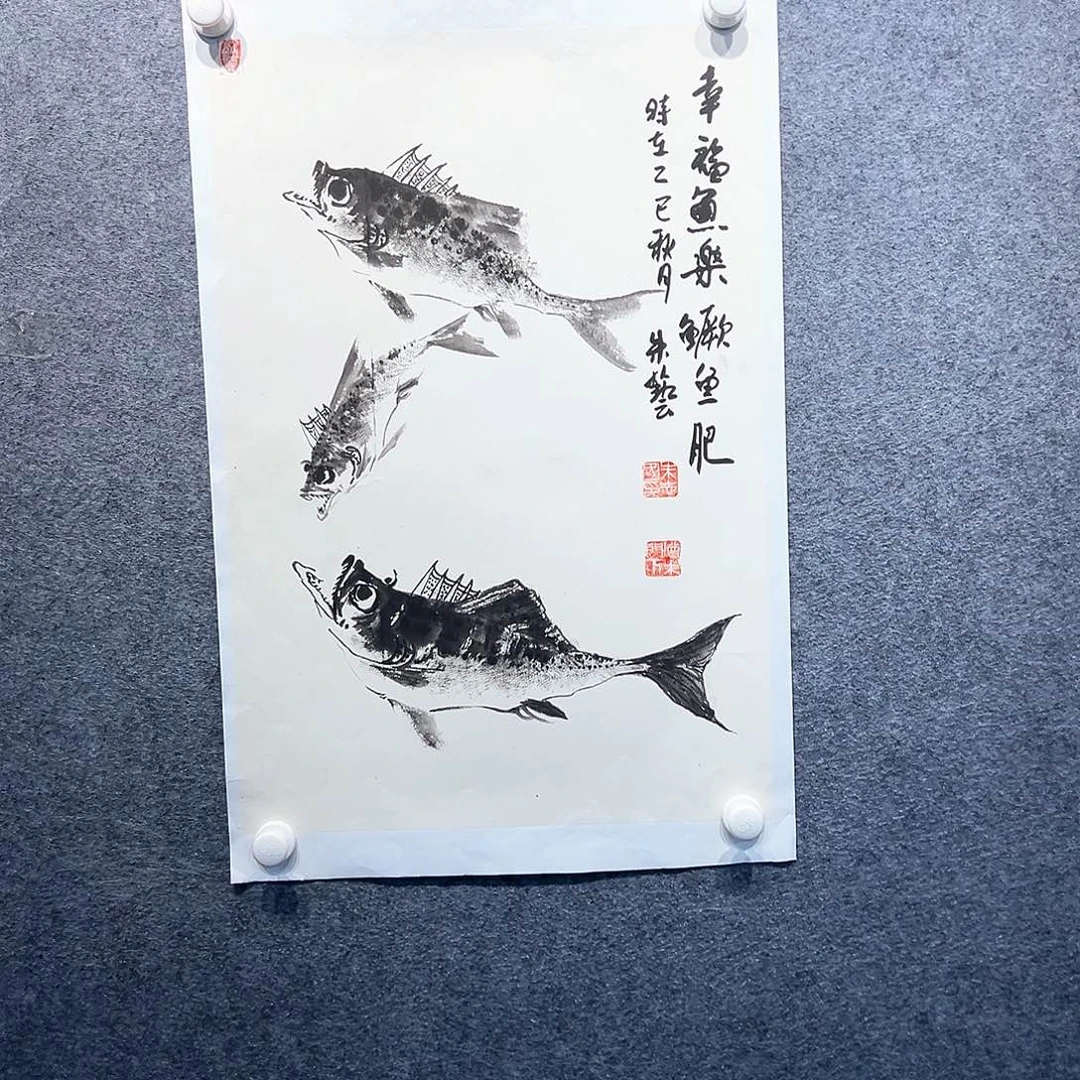 幸福魚樂鱖魚肥
時在乙巳秋月 朱藝